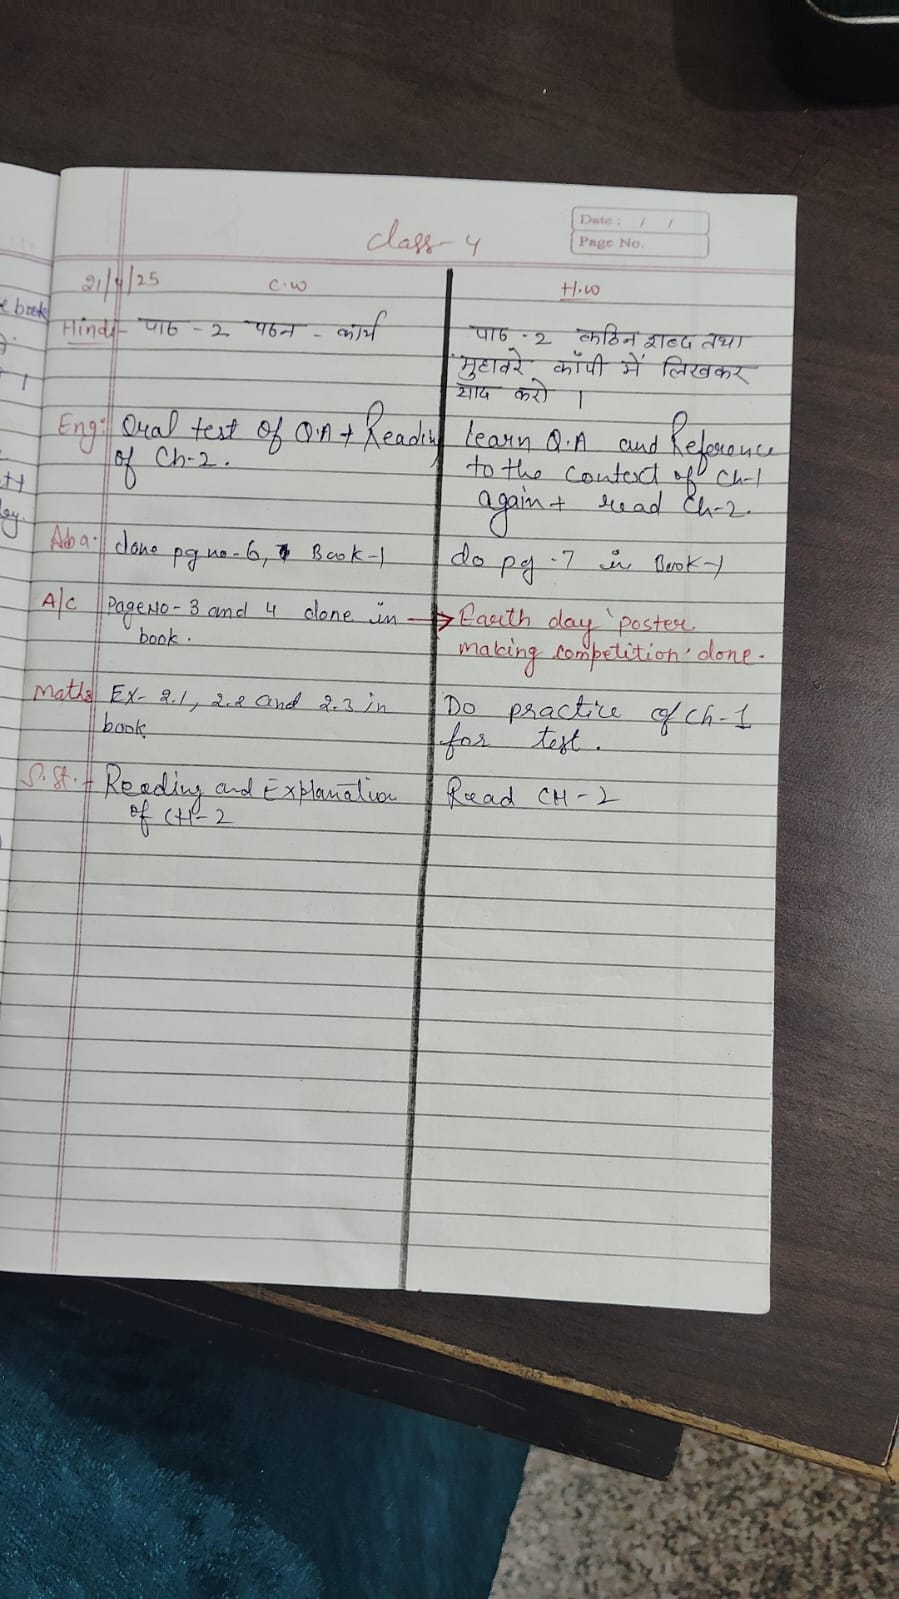 Date: / /
Page No.
Class-4
21/4/25 C.W H.W
Hindi- पाठ - 2 पठन - कार्य
पाठ - 2 कठिन शब्द तथा
मुहावरे कॉपी में लिखकर
याद करो ।
Eng: Oral test of Q.A + Reading
of Ch-2.
Learn Q.A and Reference
to the context of Ch-1
again + read Ch-2.
Aba. done pg no-6, Book-1
do pg -7 in Book-1
A/C Page No - 3 and 4 done in
book.
→ Earth day poster
making competition done.
Maths Ex- 2.1, 2.2 and 2.3 in
book
Do practice of Ch-1
for test.
S.St. - Reading and Explanation
of CH-2
Read CH-2
e book